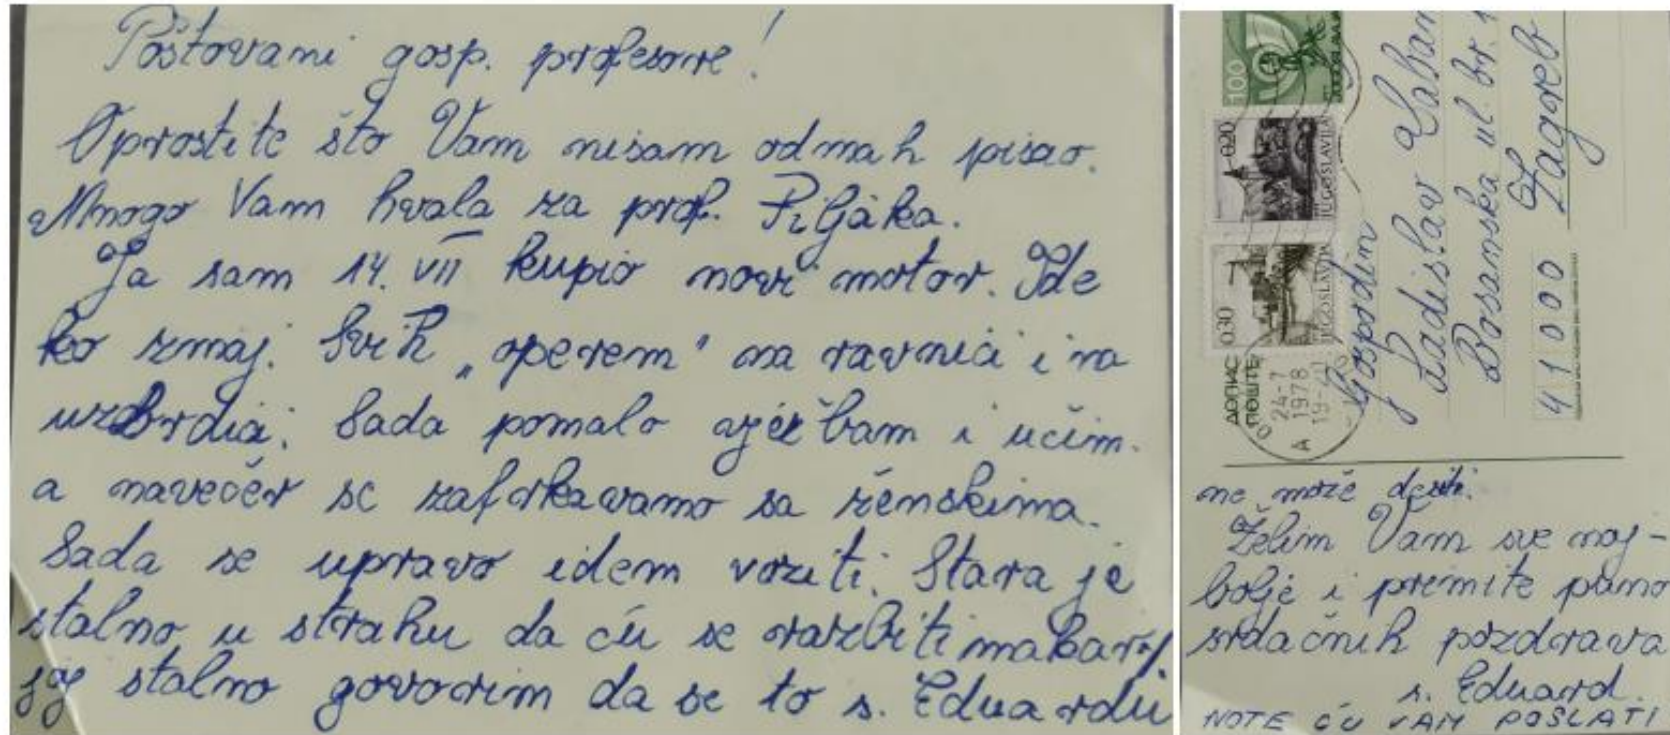 Poštovani gosp. profesore!
Oprostite što Vam nisam odmah pisao.
Mnogo Vam hvala za prof. Piljáka.
Ja sam 14. VII kupio novi motor. Ide
ko zmaj. Svih „operem" na ravnici i na
uzbrdici. Sada pomalo vježbam i učim.
a navečer se zafrkavamo sa ženskima.
Sada se upravo idem voziti. Stara je
stalno u strahu da ću se razbiti makar
joj stalno govorim da se to s. Eduardu
100
0.20
JUGOSLAVIJA
0.30
JUGOSLAVIJA
ДОПИС
ПОШТЕ
24-7
1978
19-
A
Gospodin
Ladislav
Bosanska ul. br. 1
41000 Zagreb
ne može desiti.
Želim Vam sve naj-
bolje i primite puno
srdačnih pozdrava
s. Eduard.
NOTE ĆU VAM POSLATI